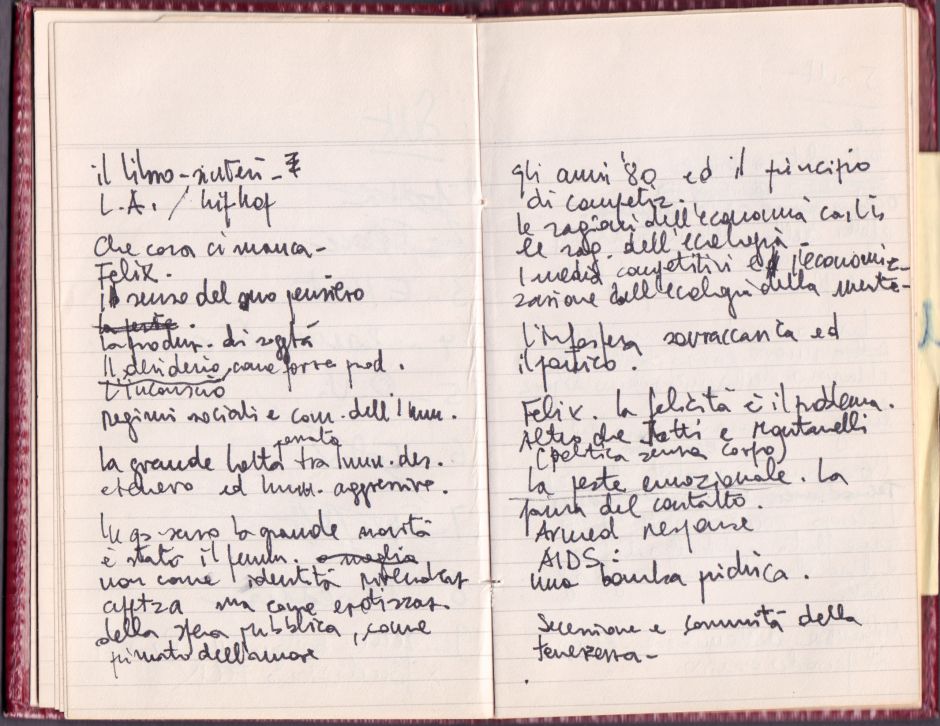 il libro-sinteri-
L.A. / hip hop
Che cosa ci manca -
Felix.
il senso del suo pensiero
la peste.
la produz. di sogtà
Il desiderio, come forza prod.
L'inconscio
regimi sociali e com. dell'Imm.
la grande lotta tra Imm. des.
perduta
etenero ed Imm. aggressivo.
In qs senso la grande novità
è stato il femm. o meglio
non come identità
ma come erotizzaz.
della sfera pubblica, come
primato dell'amore
gli anni '80 ed il principio
di competiz.
le ragioni dell'economia contro
le rag. dell'ecologia -
I media competitivi e l'economiz-
zazione dell'ecologia della mente -
L'infosfera sovraccarica ed
il panico.
Felix. la felicità è il problema.
Altro che Tatti e Montanelli
(politica senza corpo)
La peste emozionale. La
paura del contatto.
Armed response
AIDS:
una bomba psichica.
Secessione e comunità della
tenerezza -